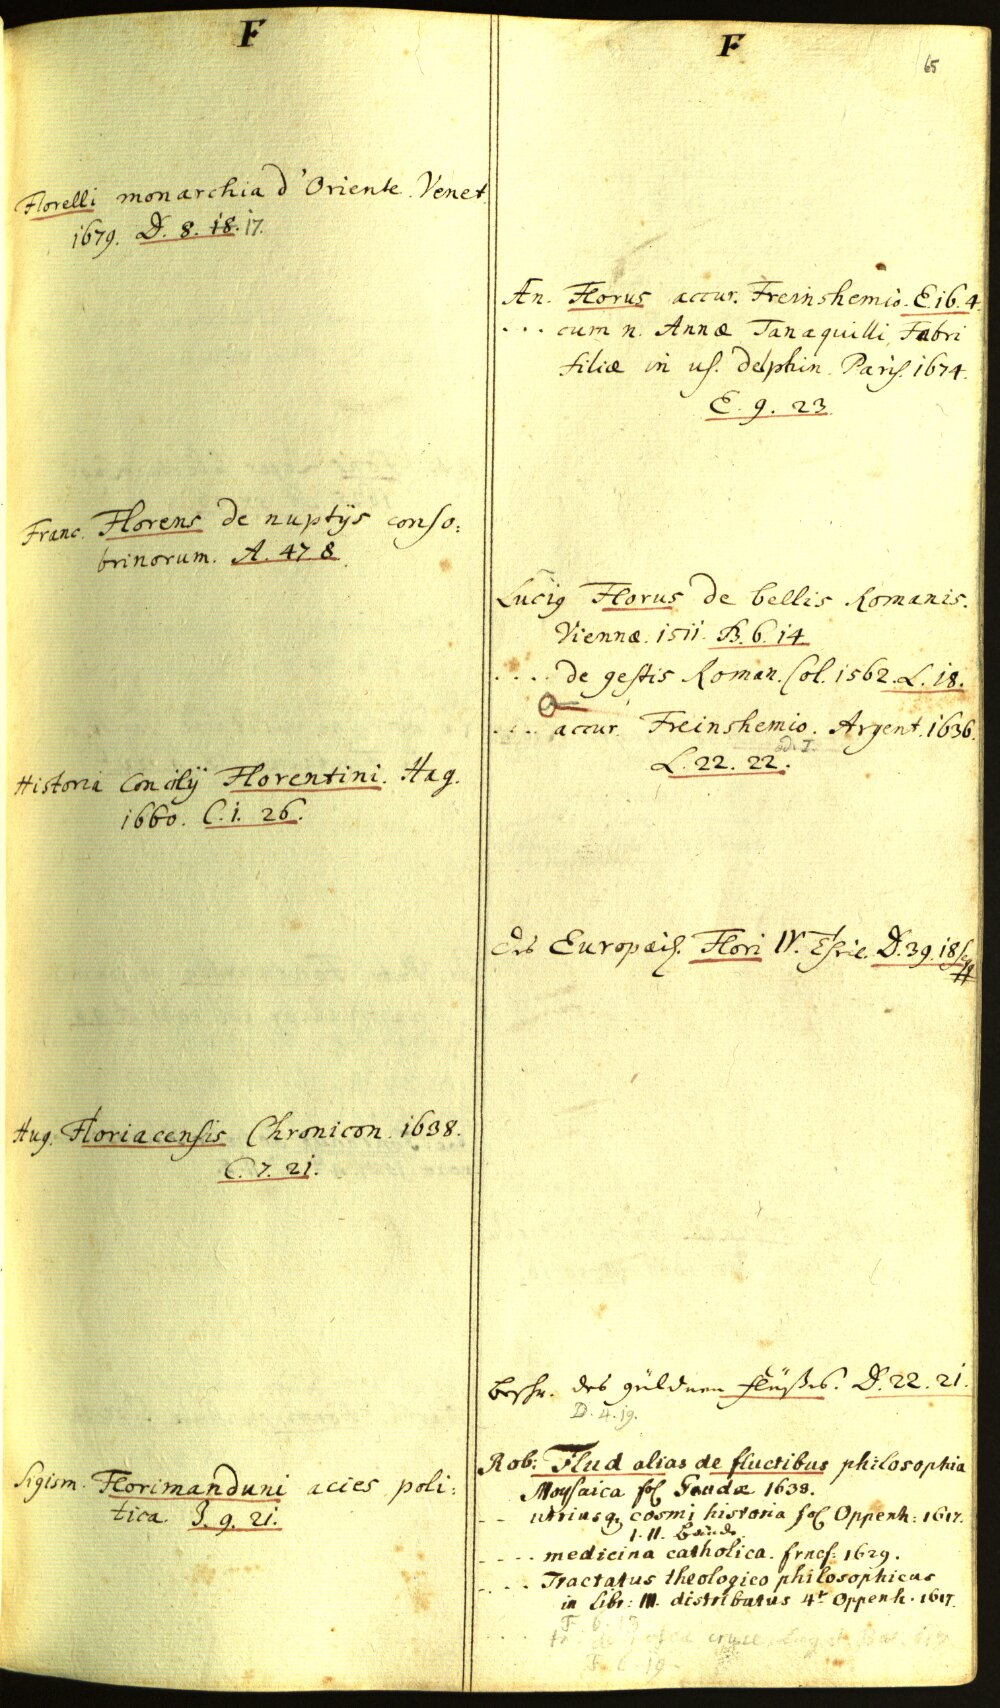 F
Florelli monarchia d'Oriente. Venet.
1679. D. 8. 18. 17.
Franc. Florens de nuptijs conso:
brinorum. A. 47 8.
Historia Concilij Florentini. Hag.
1660. C. 1. 26.
Hug. Floriacensis Chronicon. 1638.
C. 7. 21.
Sigism. Florimanduni acies poli:
tica. J. 9. 21.
F
65
An. Florus accur. Freinshemio. E. 16. 4
. . . cum n. Annæ Tanaquilli Fabri
filiæ in us. delphin. Paris. 1674.
E. 9. 23
Florus de bellis Romanis.
Viennæ. 1511. B. 6. 14
. . . . de gestis Roman. Col. 1562. L. 18.
. . . . accur. Freinshemio. Argent. 1636.
ad. I.
L. 22. 22.
Des Europæis. Flori IV. D. 39. 18
Beschr. des güldnen flüßes. D. 22. 21.
D. 4. 19.
Rob: Flud alias de fluctibus philosophia
Moysaica fol Goudæ 1638.
- - utriusq. cosmi historia fol Oppenh: 1617.
1. II. Bände.
- - - - medicina catholica. frncf: 1629.
- - . . . Tractatus theologico philosophicus
in Libr: III. distributus 4t Oppenh. 1617.
F. 6. 19
. . . . cruce
F. 6. 19.